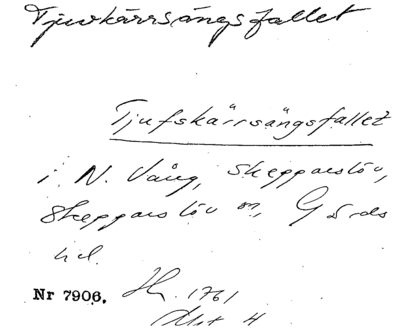 Tjuvkärrsängsfallet
Tjufskärrsängsfallet
i N. Vång, Skepparslöv,
Skepparslöv sn, Gärds
hd.
Nr 7906. Hs. 1761
Akt 4